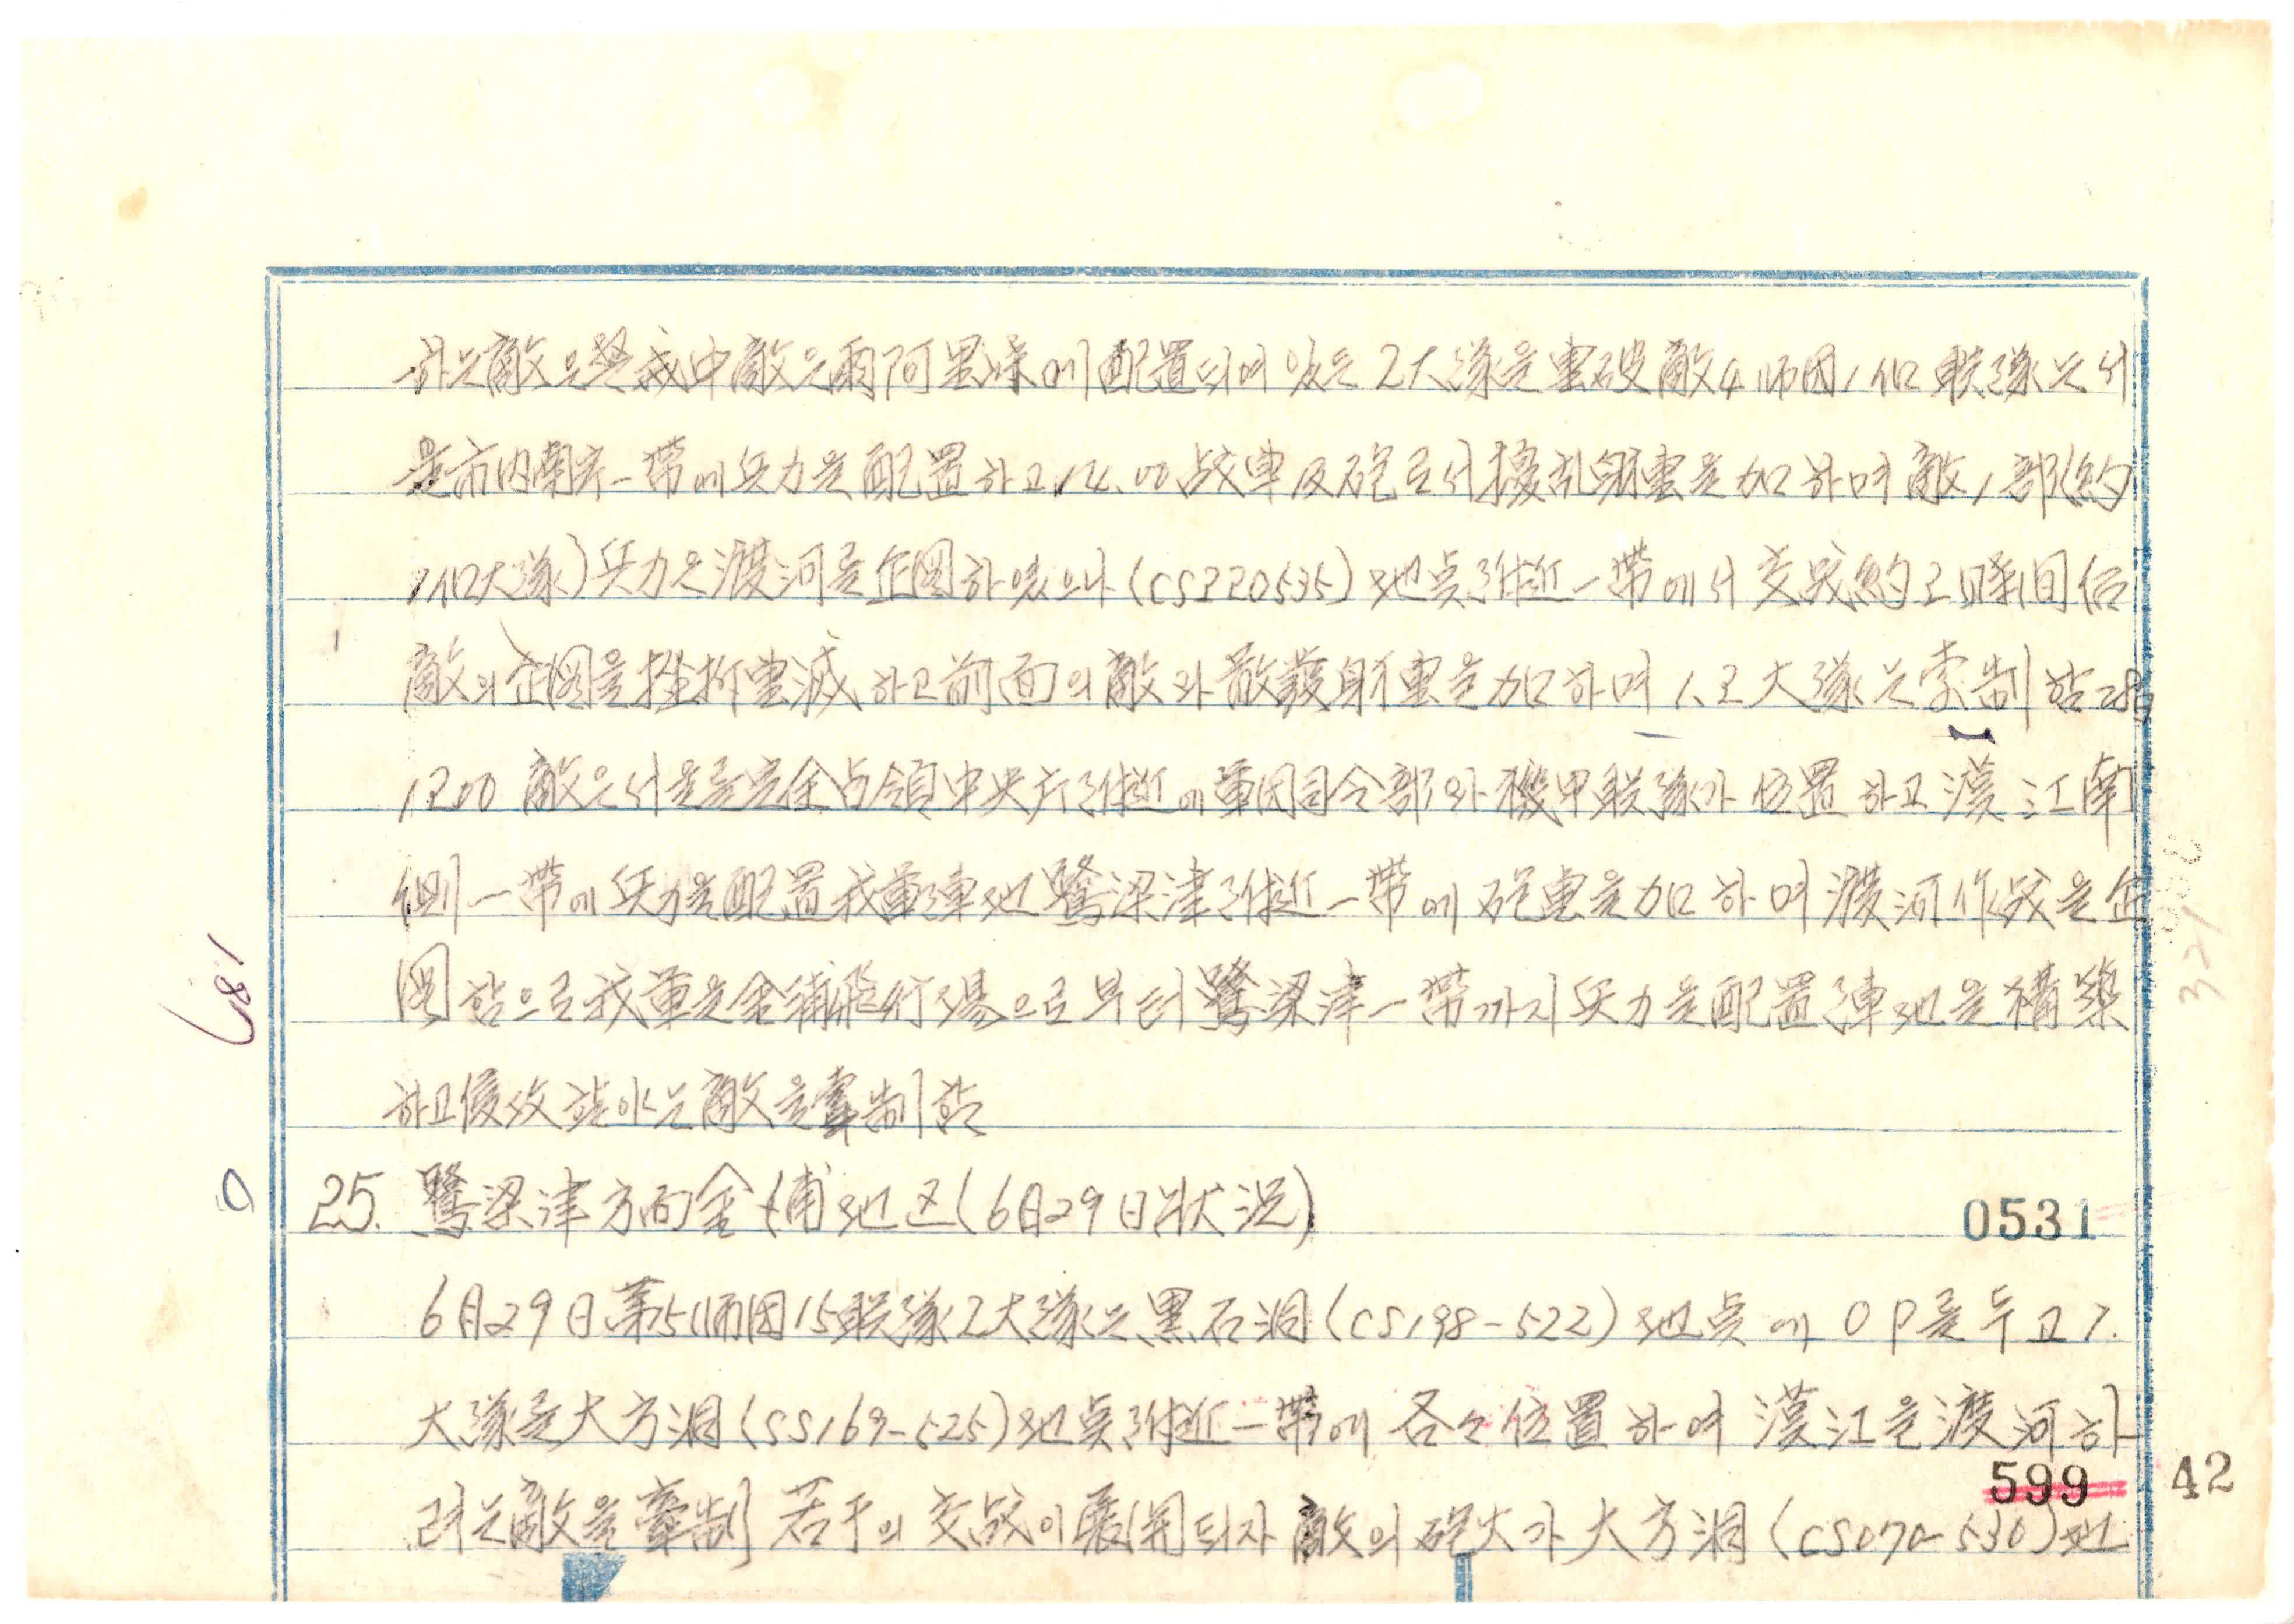 하는 敵을 警戒中 敵은 阿里 에 配置되여 있는 2大隊을 擊破 敵4师团1個 联隊는 서
울市内 一帶에 兵力을 配置하고 14.00 战車及砲로서 擾乱射擊을 加하며 敵1部(約
1個大隊) 兵力은 渡河를 企图하였으나 (CS220535) 地点附近一帶에서 交战 約2時间后
敵의 企图을 挫折 擊滅하고 前面의 敵와 散發射擊을 加하며 1.2大隊는 牽制함 28日
1200 敵은 서울을 完全占領 中央庁附近에 軍団司令部와 機甲联隊가 位置하고 漢江南
側一帶에 兵力을 配置 我軍陣地 鷺梁津附近一帶에 砲擊을 加하며 渡河作战을 企
图함으로 我軍은 金浦飛行場으로부터 鷺梁津一帶까지 兵力을 配置 陣地을 構築
하고 侵攻 는 敵을 牽制함
25. 鷺梁津方面 金浦地区(6月29日 狀況)
0531
6月29日 第5师团15联隊2大隊는 黑石洞(CS198-522) 地点에 OP를 두고 7.
大隊를 大方洞(SS169-525) 地点附近一帶에 各々 位置하여 漢江을 渡河하
려는 敵을 牽制 若干의 交战이 展開되자 敵의 砲火가 大方洞(CS070-530) 地
599
42
681
321